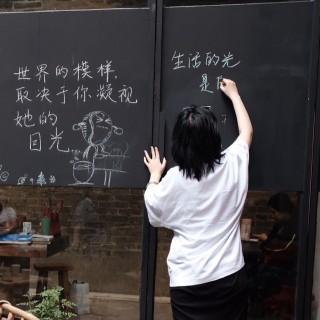 世界的模样，
取决于你凝视
她的
目光
生活的光
是